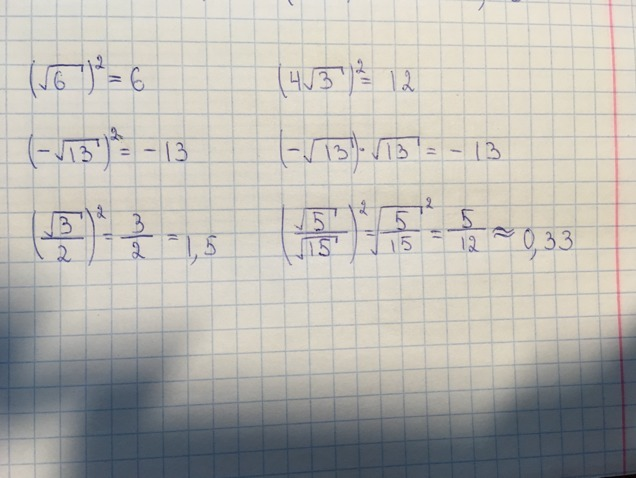 (√6)² = 6    (4√3)² = 12
(-√13)² = -13    (-√13)·√13 = -13
(√3/2)² = 3/2 = 1,5    (√5/√15)² = √(5/15)² = 5/12 ≈ 0,33